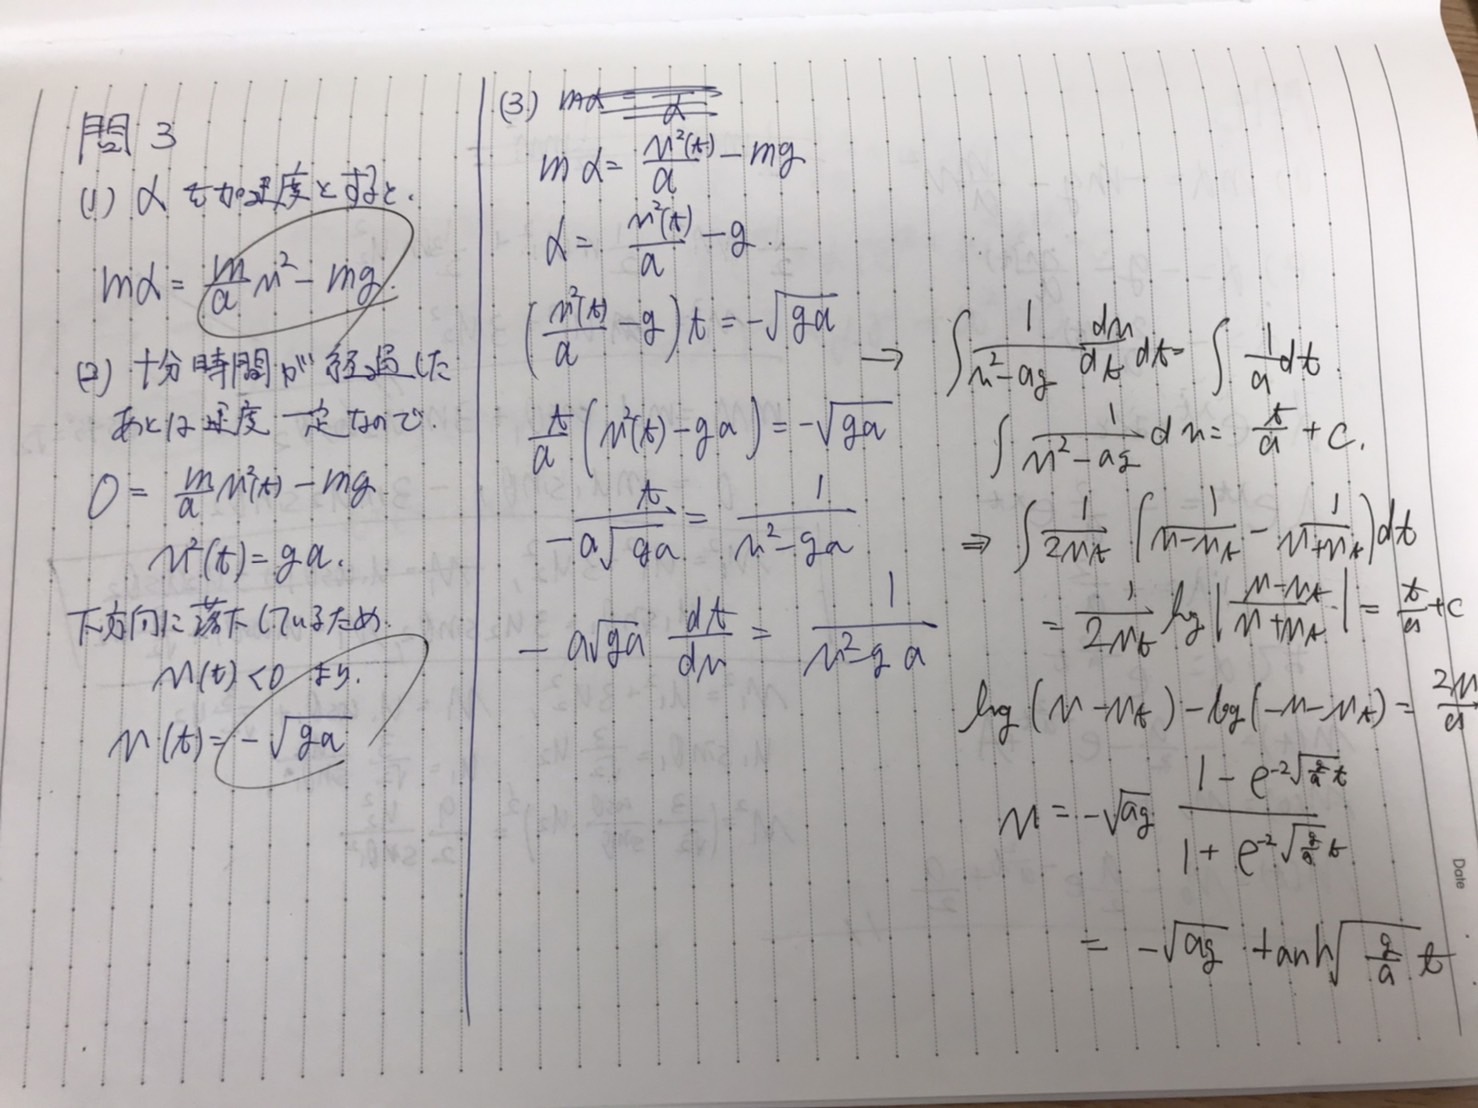 問3
(1) αを加速度とすると.
mα = m/a v² − mg.
(2) 十分時間が経過した
あとは速度一定なので.
0 = m/a v²(t) − mg
v²(t) = ga.
下方向に落下しているため.
v(t) < 0 より.
v(t) = −√ga
(3)
mα = v²(t)/a − mg
α = v²(t)/a − g.
(v²(t)/a − g) t = −√ga
t/a (v²(t) − ga) = −√ga
t/−a√ga = 1/v²−ga
− a√ga dt/dv = 1/v²−ga
→ ∫ 1/v²−ag dv/dt dt = ∫ 1/a dt.
∫ 1/v²−ag dv = t/a + C.
⇒ ∫ 1/2vt (1/v−vt − 1/v+vt) dt
= 1/2vt log | v−vt/v+vt | = t/a + C
log (v − vt) − log (−v − vt) =
v = −√ag 1 − e^−2√(g/a) t / 1 + e^−2√(g/a) t
= −√ag tanh √(g/a) t
Date